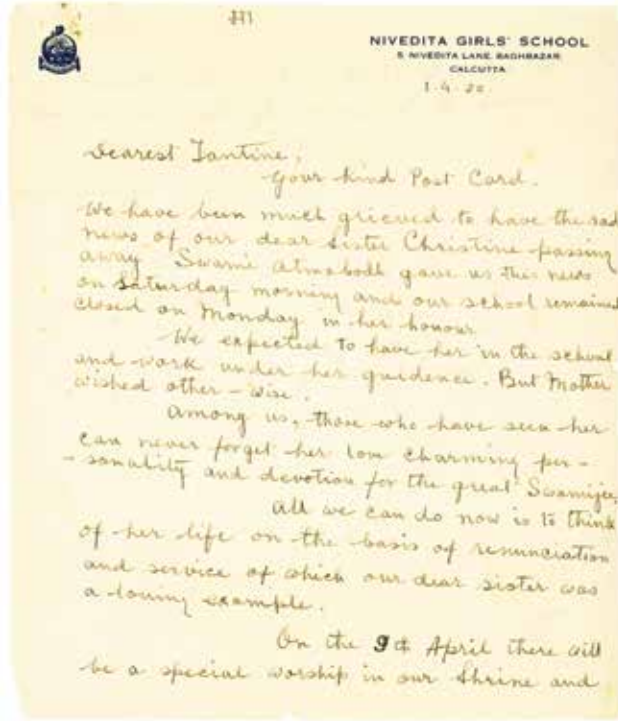 NIVEDITA GIRLS' SCHOOL
5, NIVEDITA LANE, BAGHBAZAR
CALCUTTA
1.4.30.
Dearest Tantine,
Your kind Post Card.
We have been much grieved to have the sad
news of our dear Sister Christine passing
away Swami Atmabodh gave us this news
on Saturday morning and our school remained
closed on Monday in her honour.
We expected to have her in the school
and work under her guidence. But Mother
wished other-wise.
Among us, those who have seen her
can never forget her love charming per-
-sonality and devotion for the great Swamijee,
All we can do now is to think
of her life on the basis of renunciation
and service of which our dear sister was
a loving example.
On the 9th April there will
be a special worship in our Shrine and